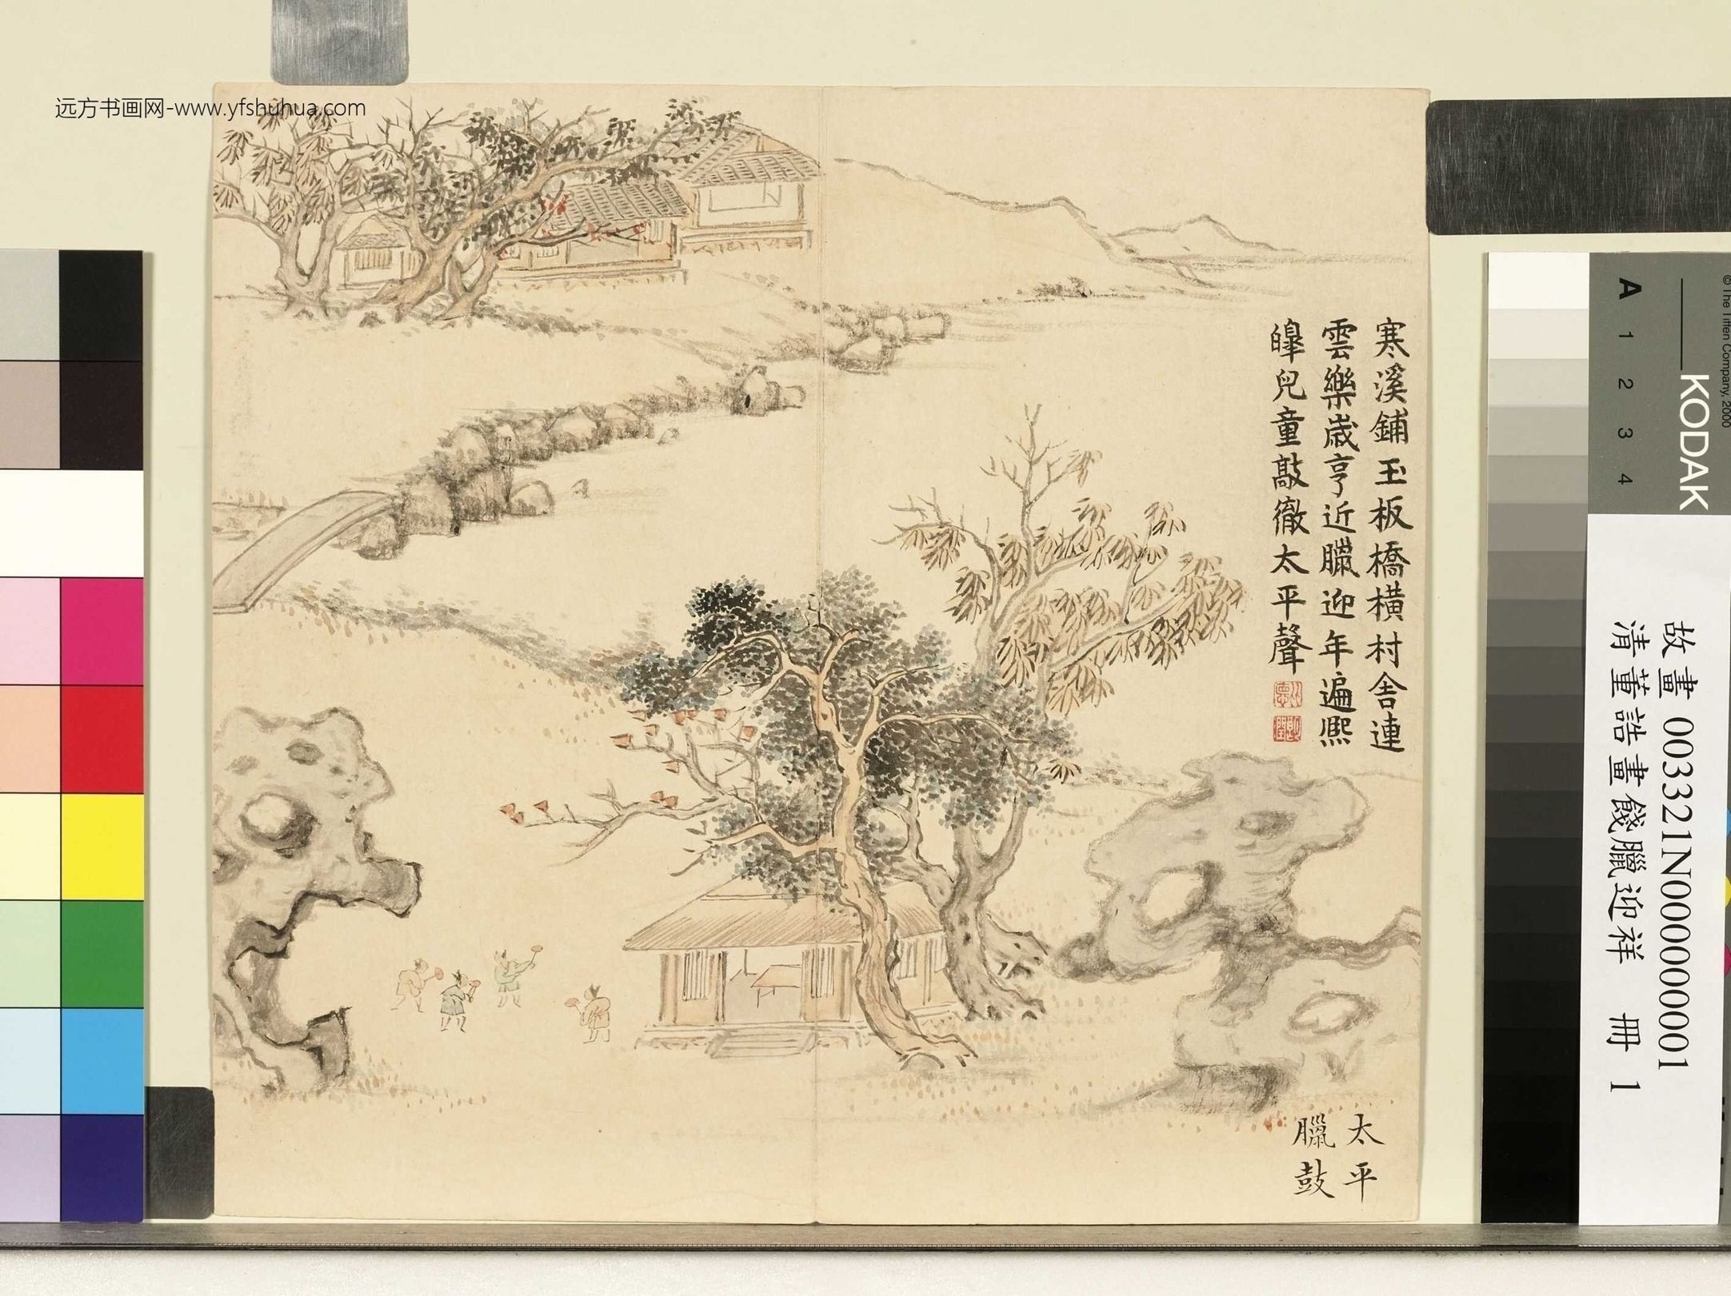 远方书画网-www.yfshuhua.com
寒溪鋪玉板橋橫村舍連
雲樂歲亨近臘迎年遍熙
皥兒童敲徹太平聲
太平
臘鼓
© The Tiffen Company, 2000
KODAK
A 1 2 3 4
故畫 003321N000000001
清董誥畫餞臘迎祥 冊 1